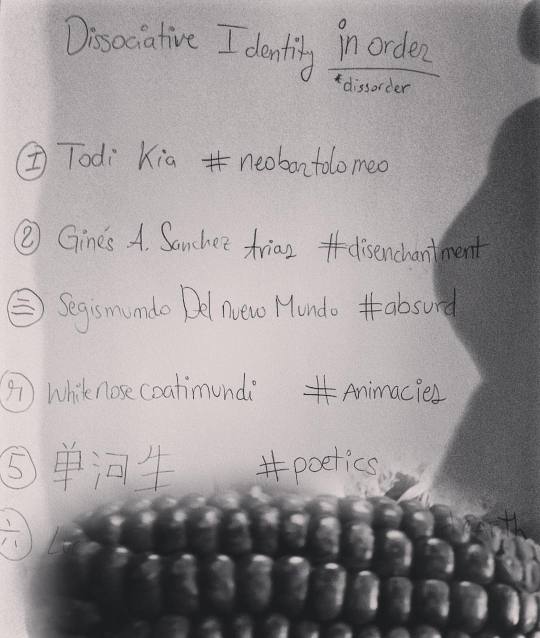 Dissociative Identity in order
*dissorder
I Todi Kia # neobartolomeo
2 Ginés A. Sanchez Arias #disenchantment
三 Segismundo Del nuevo Mundo #absurd
4 whitenose coatimundi # Animacies
5 单河生 #poetics
六